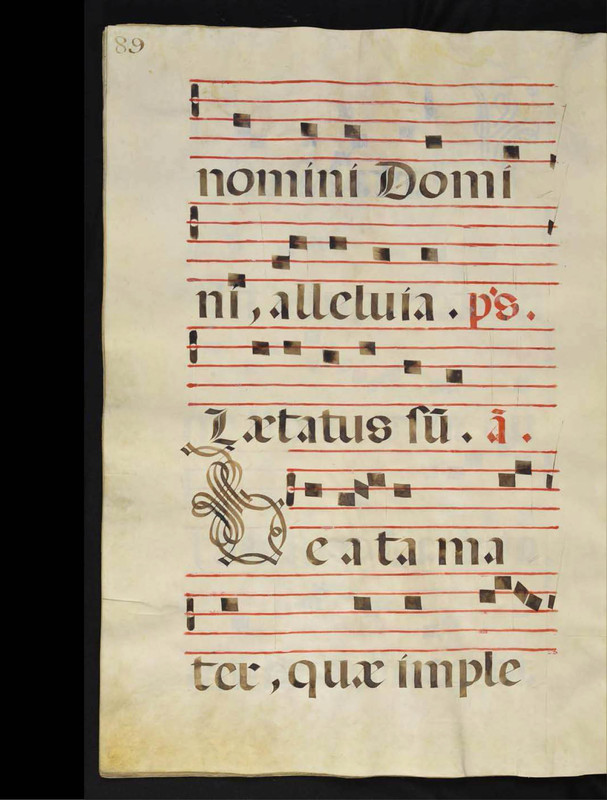 89
nomini Domi
ni, alleluia. ps.
Lætatus sū. ā.
Beata ma
ter, quæ imple